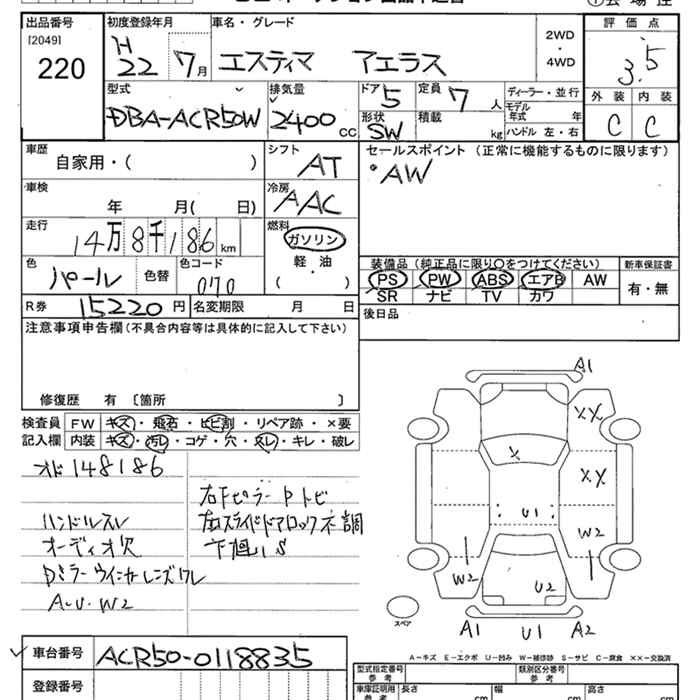 出品番号
[2049]
220
初度登録年月
H
22 7月
車名・グレード
エスティマ アエラス
2WD
・
4WD
評価点
3.5
型式
DBA-ACR50W
排気量
2400 CC
ドア 5
形状 SW
定員 7 人
積載 kg
ディーラー・並行
モデル年式 年
ハンドル 左・右
外装 内装
C C
車歴
自家用・( )
シフト
AT
セールスポイント (正常に機能するものに限ります)
・AW
車検
年 月( 日)
冷房
AAC
走行
14万8千186km
燃料
ガソリン
軽・油
( )
色
パール
色替
色コード
070
装備品 (純正品に限り○をつけてください)
PS PW ABS エアB AW
SR ナビ TV カワ
新車保証書
有・無
R券 15220円
名変期限 月 日
後日品
注意事項申告欄(不具合内容等は具体的に記入して下さい)
修復歴 有 〔箇所 〕
検査員
記入欄
FW キズ・飛石・ヒビ割・リペア跡・×要
内装 キズ・汚レ・コゲ・穴・スレ・キレ・破レ
オド148186
ハンドルスレ
オーディオ欠
Dミラーウインカーレンズワレ
A・U・W2
右Fピラー Pトビ
左スライドドアロック不調
下廻りS
A1
XX
X
XX
U1
W2
W2
U2
スペア
A1 U1 A2
A-キズ E-エクボ U-凹み W-補修跡 S-サビ C-腐食 ××-交換済
車台番号
ACR50-0118835
登録番号
型式指定番号
参考
類別区分番号
参考
車庫証明用
参考
長さ cm
幅 cm
高さ cm